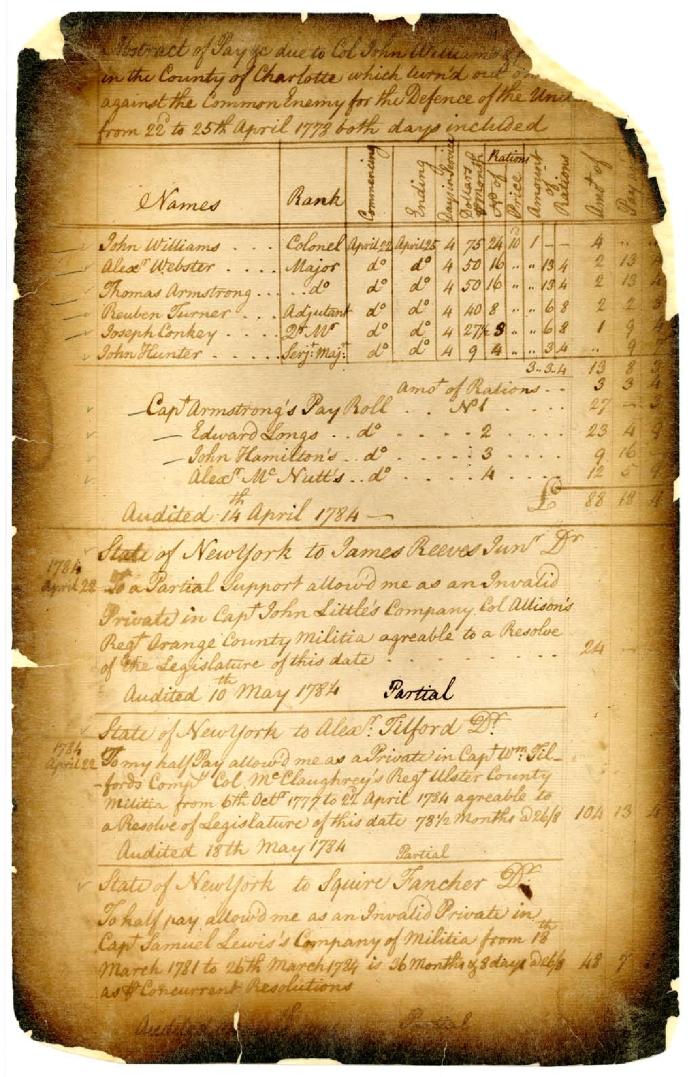 Abstract of Pay &c due to Col John Williams &
in the County of Charlotte which turn'd out on
against the Common Enemy for the Defence of the Unit
from 22d to 25th April 1778 both days included
Names Rank Commencing Ending Days in Service Dollars ⅌ Month Rations No of Price Amount of Rations Amot of Pay
John Williams .... Colonel April 22 April 25 4 75 24 10 1 - - 4 " "
Alexr Webster ... Major do do 4 50 16 " " 13 4 2 13 4
Thomas Armstrong ... do do do 4 50 16 " " 13 4 2 13 4
Reuben Turner .. Adjutant do do 4 40 8 " " 6 8 2 2 8
Joseph Conkey .. Qr Mr do do 4 27½ 8 " " 6 8 1 9 4
John Hunter .. Serjt Majr do do 4 9 4 " " 3 4 " 9 7
3..3..4 13 8 3
Amot of Rations .. 3 3 4
Capt Armstrong's Pay Roll .. No 1 .... 27 - 3
Edward Longs .. do .... 2 .... 23 4 9
John Hamilton's .. do .... 3 .... 9 16
Alexr Mc Nutt's .. do .... 4 .... 12 5 9
£ 88 18 4
Audited 14th April 1784 —
State of New York to James Reeves Junr Dr
1784
April 22 To a Partial Support allow'd me as an Invalid
Private in Capt John Little's Company Col Allison's
Regt Orange County Militia agreable to a Resolve
of the Legislature of this date ...... 24 -
Audited 10th May 1784 Partial
State of New York to Alexr. Tilford Dr.
1784
April 22 To my half Pay allow'd me as a Private in Capt Wm Til-
-fords Compy Col. McClaughrey's Regt Ulster County
Militia from 6th Octr 1777 to 22d April 1784 agreable to
a Resolve of Legislature of this date 78½ Months @ 26/8 104 13 4
Audited 18th May 1784 Partial
State of New York to Squire Fancher Dr.
To half pay allow'd me as an Invalid Private in
Capt Samuel Lewis's Company of Militia from 18th
March 1781 to 26th March 1784 is 36 Months & 8 days @ 26/8 48 7
as ⅌ Concurrent Resolutions
Audited Partial